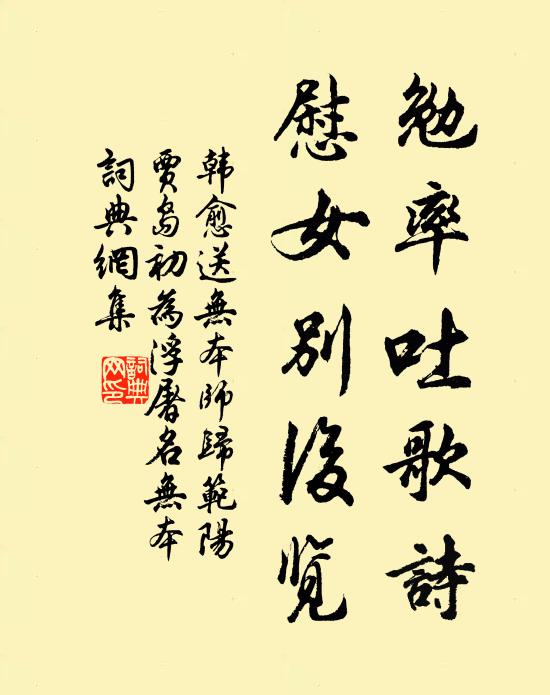 勉率吐歌詩
慰女別後覽
韩愈送無本師歸範陽
賈島初為浮屠名無本
詞典網集
詞典
网印